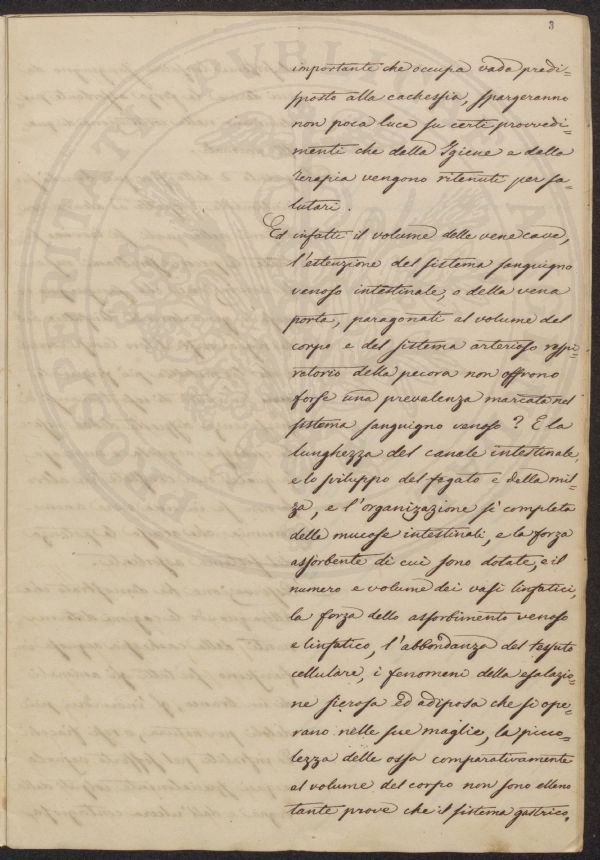 3
importante che occupa vada predi=
sposto alla cachessia, spargeranno
non poca luce su certi provvedi=
menti che dalla Igiene e dalla
Terapia vengono ritenuti per sa=
lutari.
Ed infatti il volume delle vene cave,
l'estenzione del sistema sanguigno
venoso intestinale, o della vena
porta, paragonati al volume del
corpo e del sistema arterioso respi=
ratorio della pecora non offrono
forse una prevalenza marcata nel
sistema sanguigno venoso? E la
lunghezza del canale intestinale,
e lo sviluppo del fegato e della mil=
za, e l'organizazione sì completa
delle mucose intestinali, e la forza
assorbente di cui sono dotate, e il
numero e volume dei vasi linfatici,
la forza dello assorbimento venoso
e linfatico, l'abbondanza del tessuto
cellulare, i fenomeni della esalazio=
ne sierosa ed adiposa che si ope=
rano nelle sue maglie, la picco=
lezza delle ossa comparativamente
al volume del corpo non sono elleno
tante prove che il sistema gastrico,